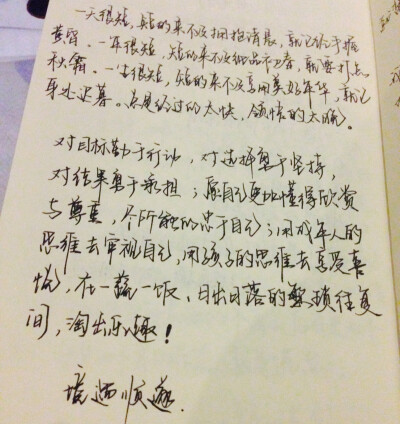 一天很短，短的来不及拥抱清晨，就已经手握
黄昏。一年很短，短的来不及细品初春，就要打点
秋霜。一生很短，短的来不及享用美好年华，就已
身处迟暮。总是经过的太快，领悟的太晚。
对目标勤于行动，对选择勇于坚持，
对结果勇于承担；愿自己更加懂得欣赏
与尊重，尽所能的忠于自己；用成年人的
思维去审视自己，用孩子的思维去享受喜
悦，在一蔬一饭、日出日落的繁琐往复
间，淘出乐趣！
境遇顺遂.